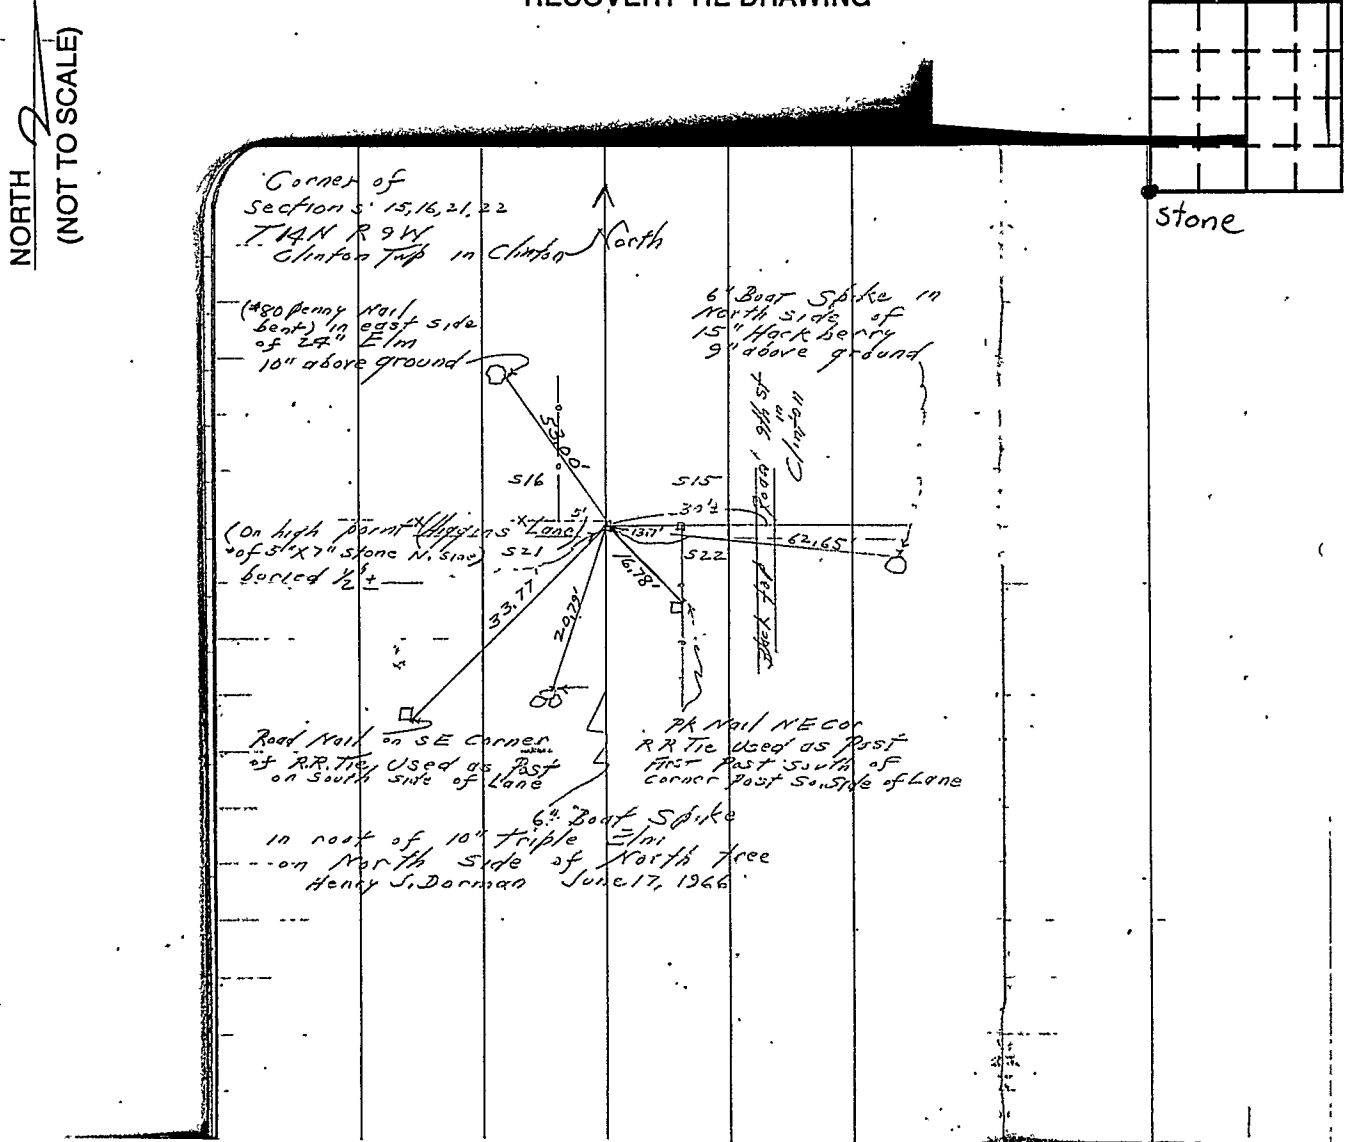 RECOVERY TIE DRAWING
NORTH
(NOT TO SCALE)
stone
Corner of
Sections 15,16,21,22
T14N R9W
Clinton Twp in Clinton
North
(#80 penny Nail
bent) in east side
of 24" Elm
10" above ground
6" Boat Spike in
North side of
15" Hackberry
9" above ground
53.00'
S16
S15
Clinton
in
9th St
30'±
5'
(On high point (Higgins Lane)
of 5"X7" stone N. side)
buried 1/2'±
S21
13.7'
S22
62.65'
16.78'
33.77
20.79'
Road Nail on SE Corner
of R.R. Tie, Used as Post
on South side of Lane
PK Nail NE Cor
RR Tie Used as Post
First Post South of
Corner Post So. Side of Lane
6" Boat Spike
in root of 10" Triple Elm
on North side of North tree
Henry S. Dorman June 17, 1966